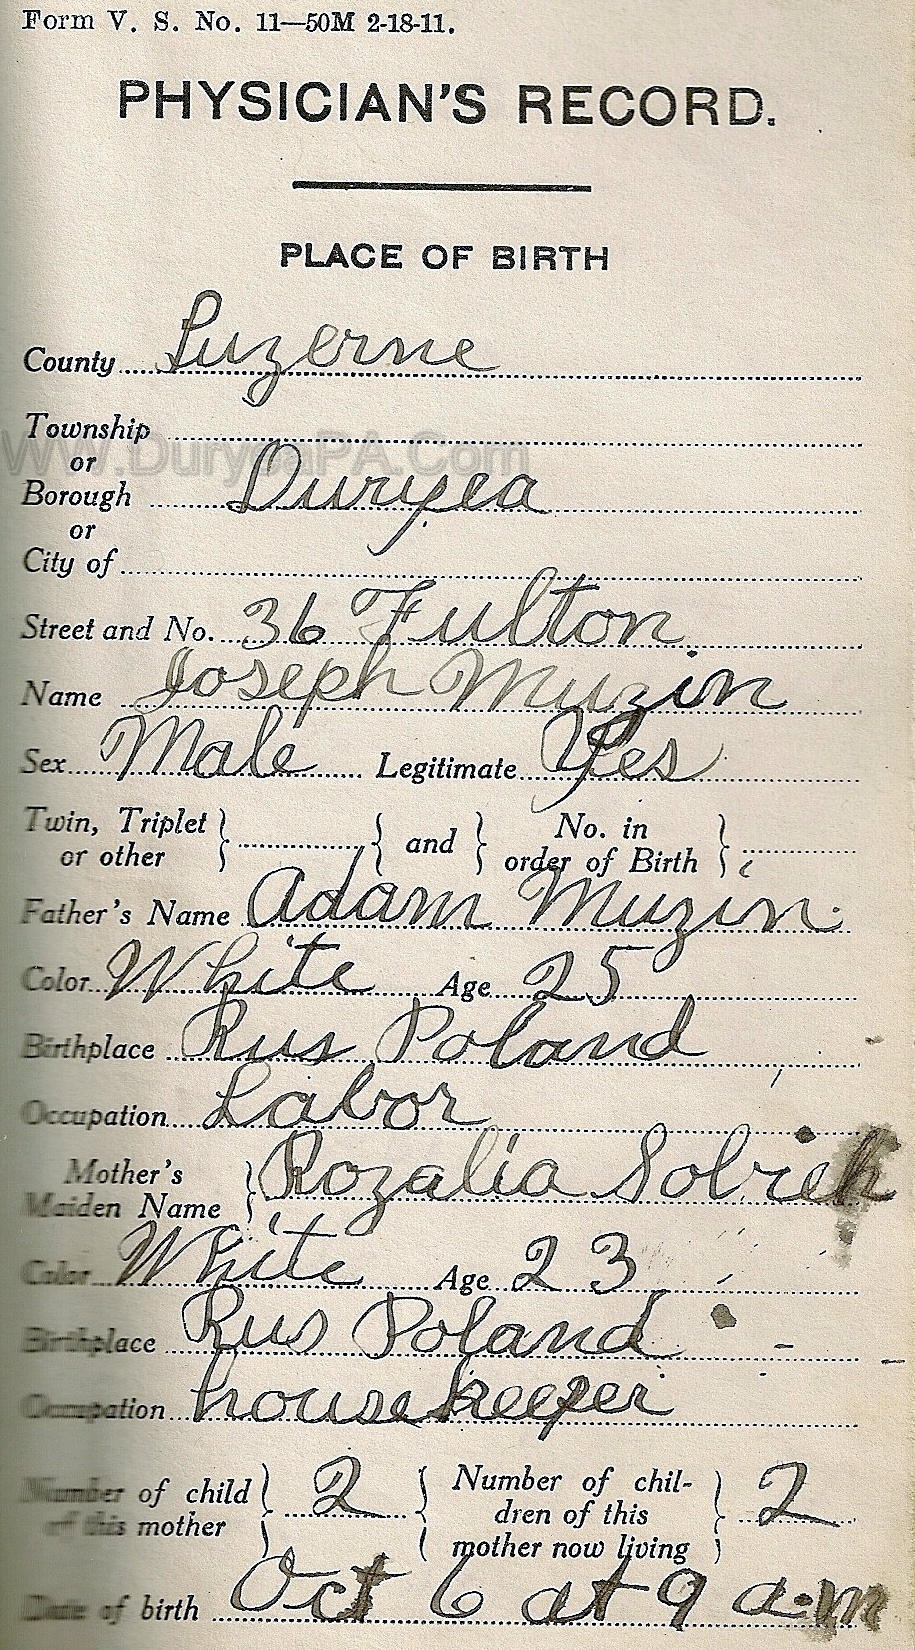 Form V. S. No. 11—50M 2-18-11.
PHYSICIAN'S RECORD.
PLACE OF BIRTH
County Luzerne
Township
www.DuryeaPA.Com
or
Borough Duryea
or
City of
Street and No. 36 Fulton
Name Joseph Muzin
Sex Male Legitimate Yes
Twin, Triplet or other } { and } No. in order of Birth }
Father's Name Adam Muzin
Color White Age 25
Birthplace Rus Poland
Occupation Labor
Mother's Maiden Name } Rozalia Sobrieh
Color White Age 23
Birthplace Rus Poland
Occupation housekeeper
Number of child of this mother } 2 { Number of chil-dren of this mother now living } 2
Date of birth Oct 6 at 9 a.m